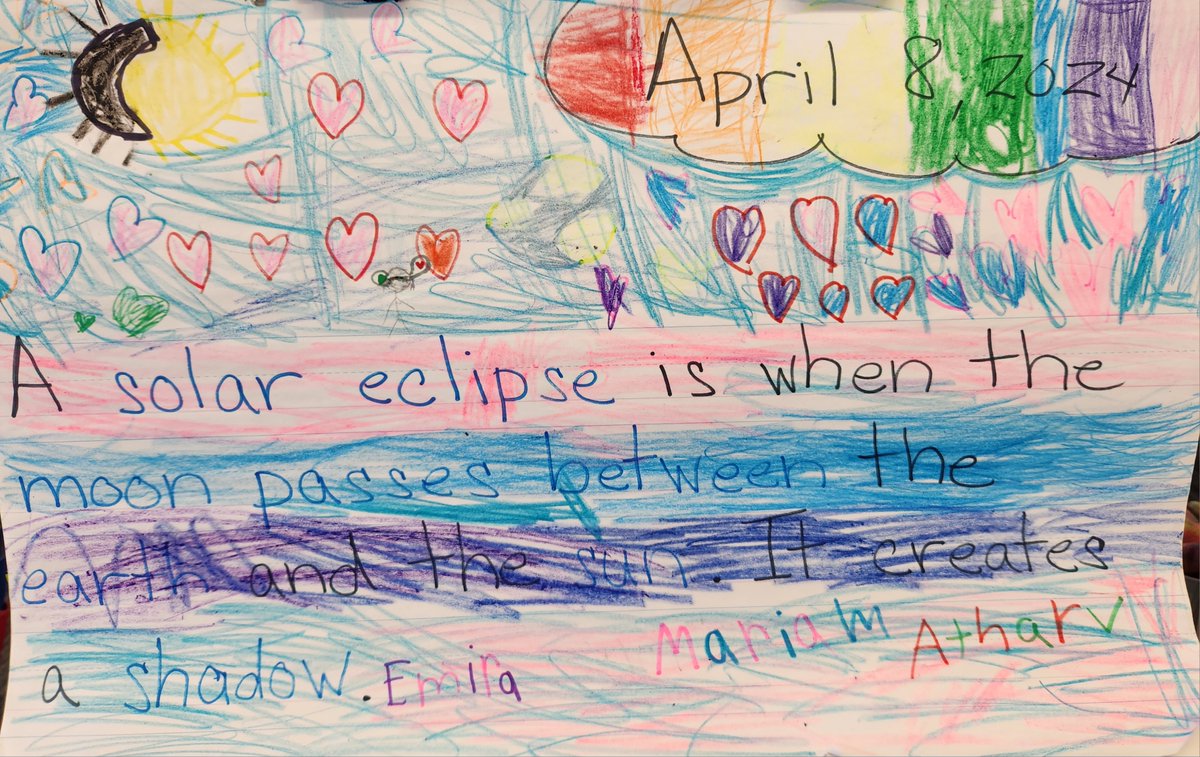 April 8, 2024
A solar eclipse is when the
moon passes between the
earth and the sun. It creates
a shadow. Emira Mariam Atharv